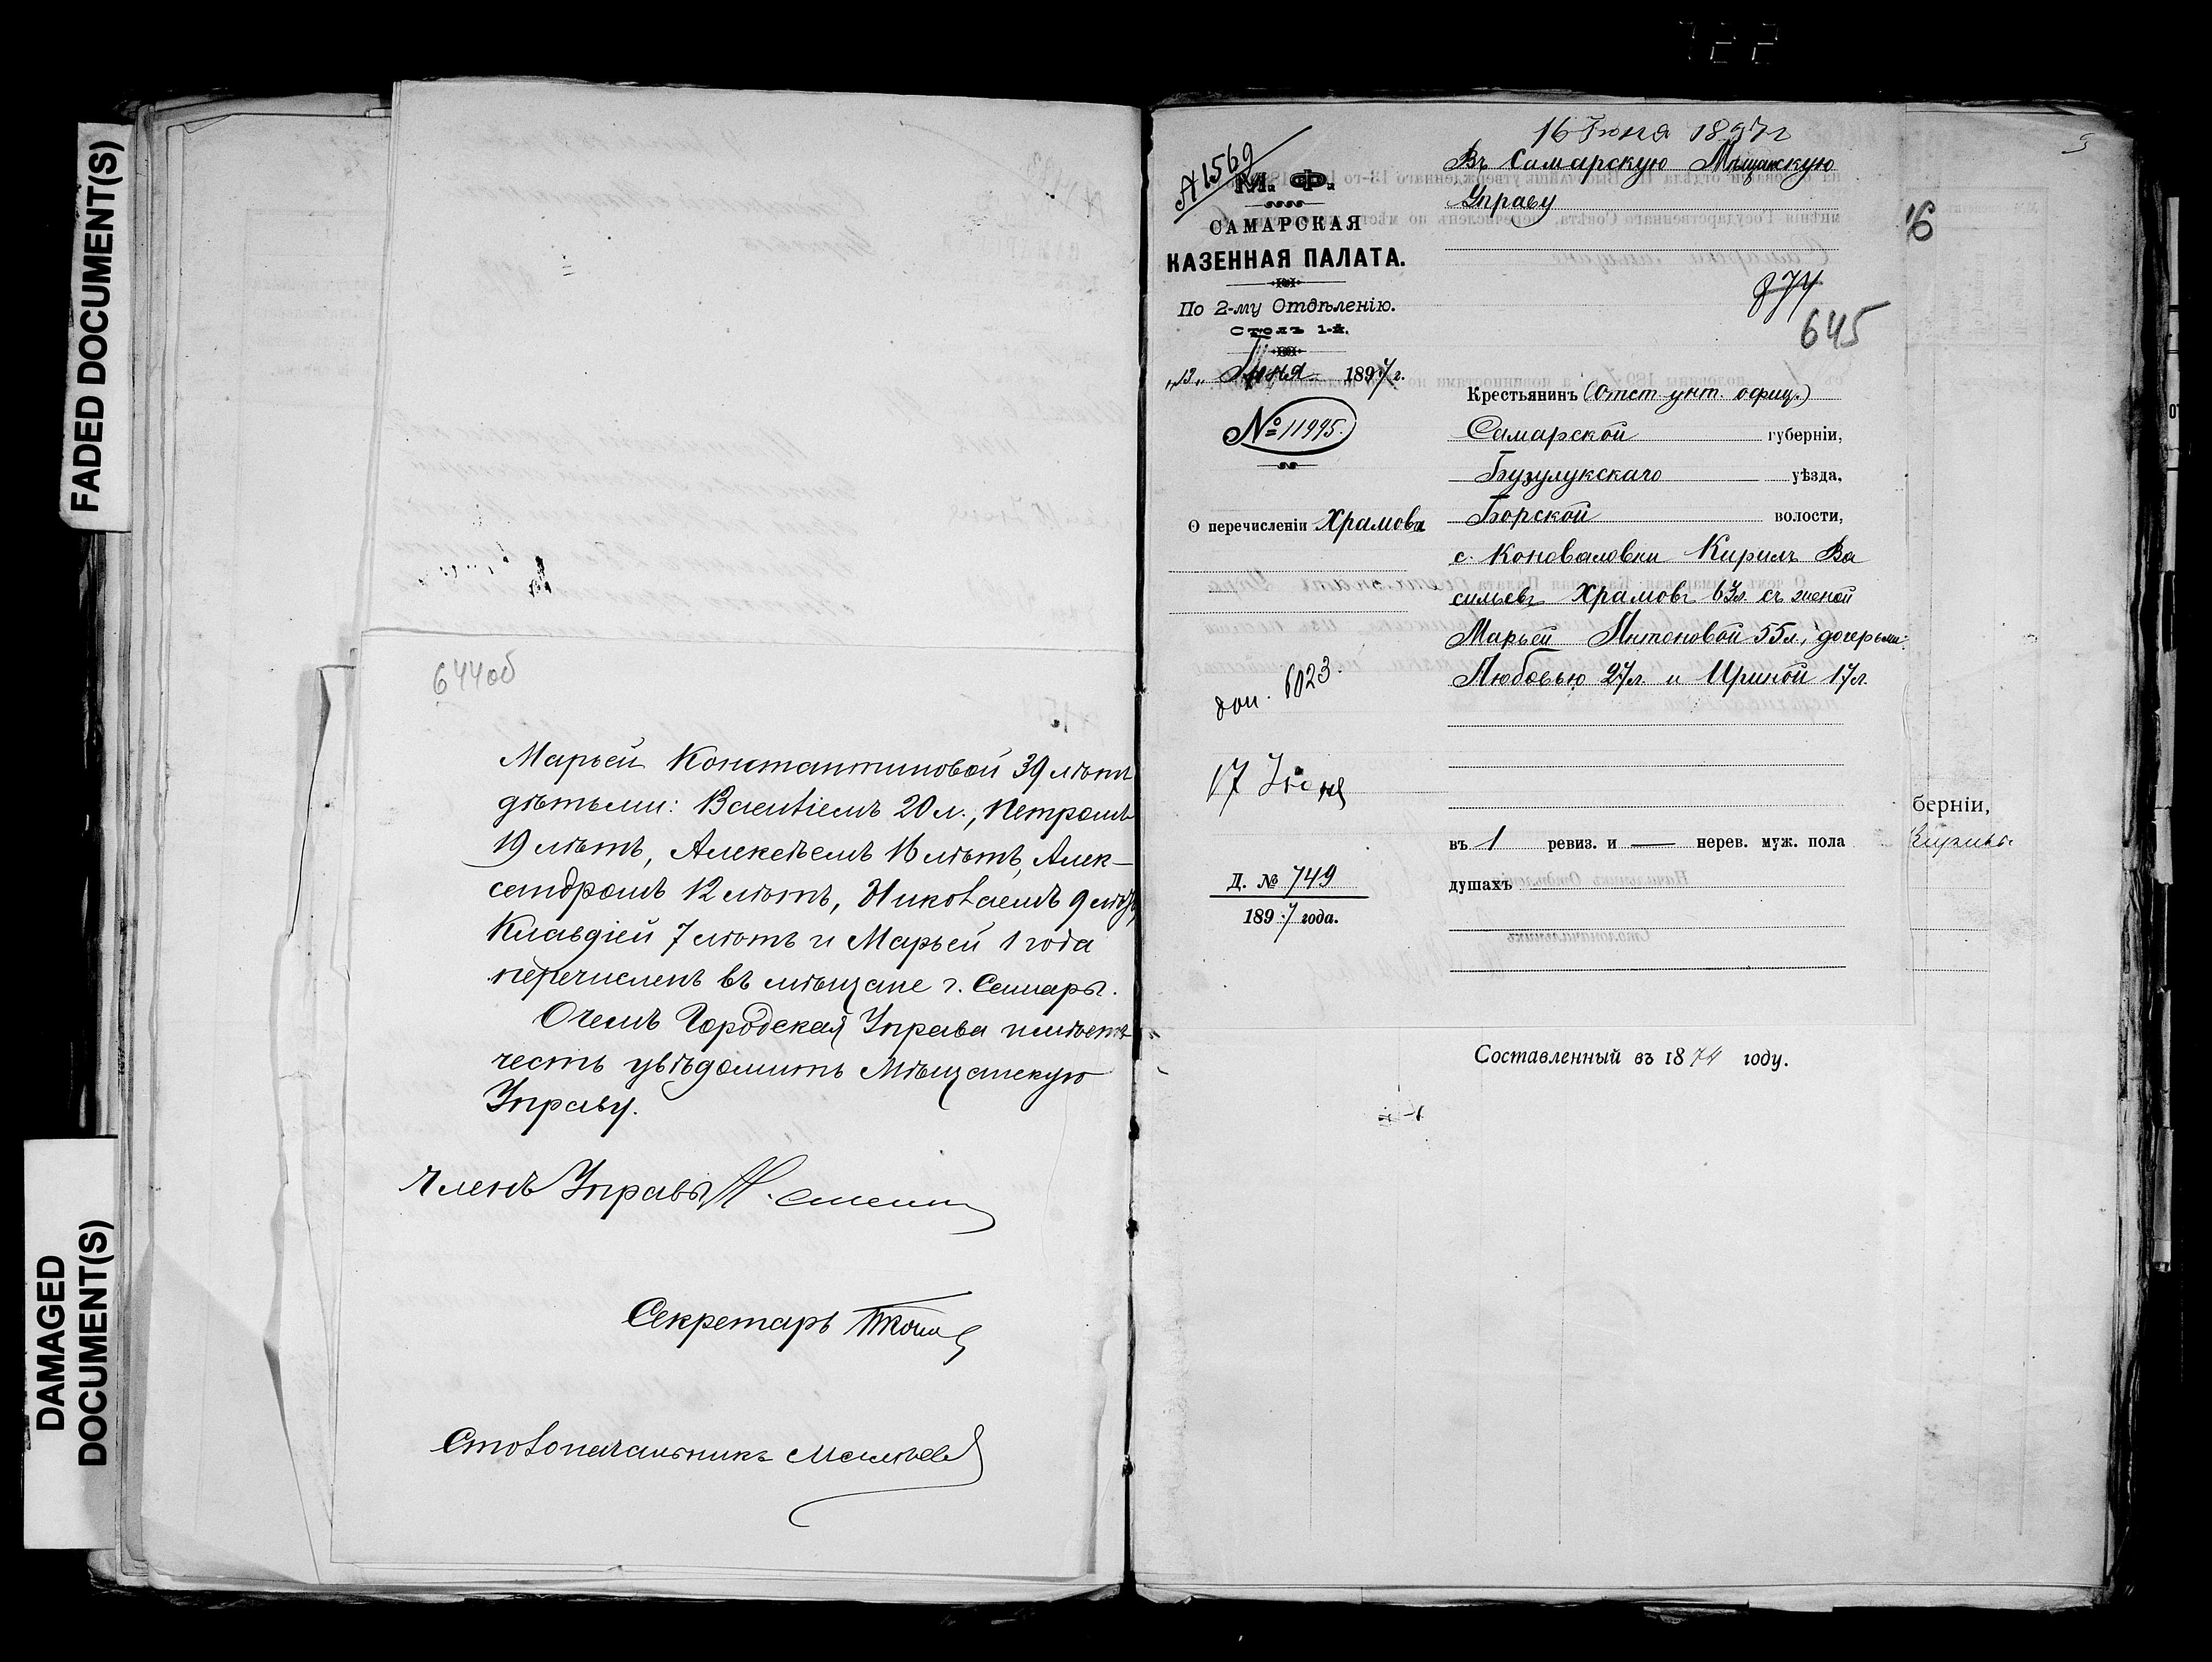 722
FADED DOCUMENT(S)
DAMAGED
DOCUMENT(S)
644об
Марьей Константиновой 39 лѣтъ
дѣтьми: Василіемъ 20 л., Петромъ
19 лѣтъ, Алексѣемъ 16 лѣтъ, Алек-
сандромъ 12 лѣтъ, Николаемъ 9 лѣтъ,
Клавдіей 7 лѣтъ и Марьей 1 года
перечисленъ въ мѣщане г. Самары.
О чемъ Городская Управа имѣетъ
честь увѣдомить Мѣщанскую
Управу.
Членъ Управы
Секретарь
Столоначальникъ
А 1569
М. Ф.
САМАРСКАЯ
КАЗЕННАЯ ПАЛАТА.
По 2-му Отдѣленію.
Столъ 1-й.
„13„ Іюня 1897 г.
№ 11995.
О перечисленіи Храмова
доп. 6023.
17 Іюня
Д. № 749
1897 года.
16 Іюня 1897 г
Въ Самарскую Мѣщанскую
Управу
874
645
Крестьянинъ (Отст. унт. офиц.)
Самарской губерніи,
Бузулукскаго уѣзда,
Борской волости,
с. Коноваловки Кирилъ Ва
сильевъ Храмовъ 63 л. съ женой
Марьей Антоновой 55 л., дочерьми:
Любовью 27 л. и Ириной 17 л.
въ 1 ревиз. и — нерев. муж. пола
душахъ
6
берніи,
Составленный въ 1874 году.